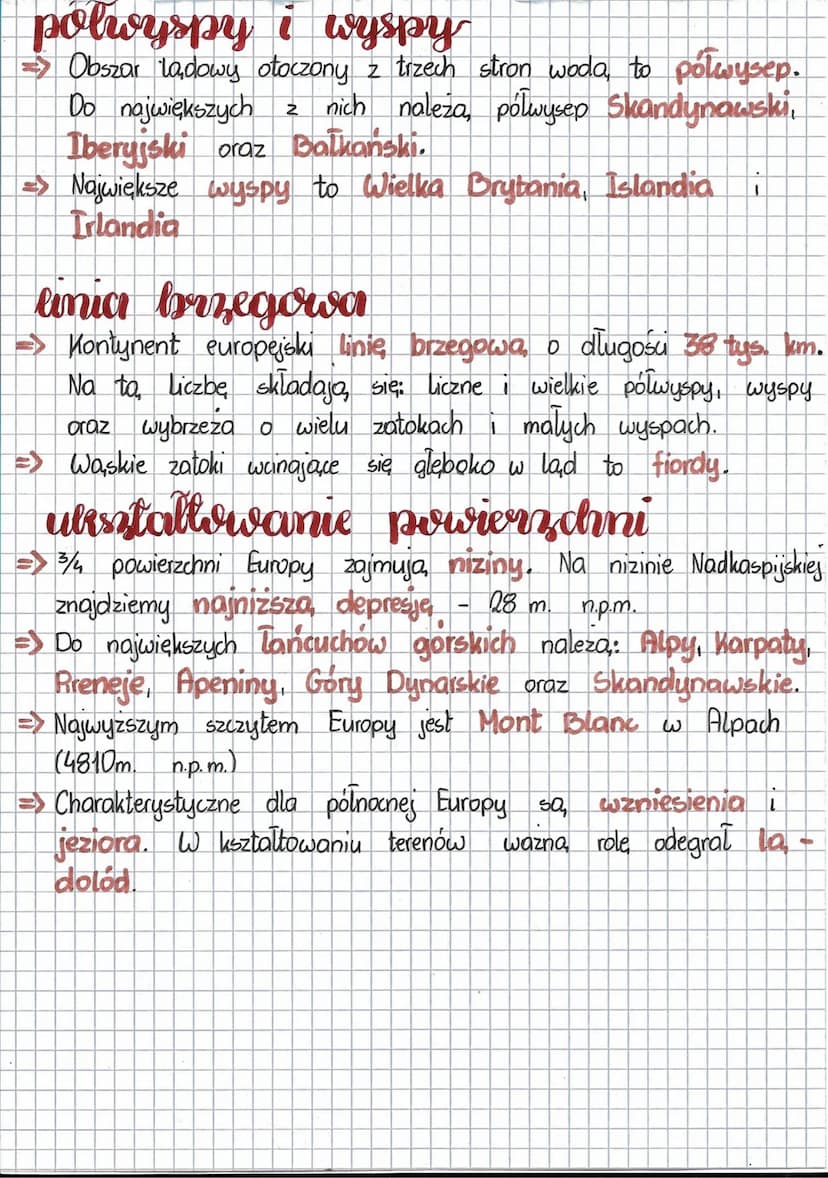 półwyspy i wyspy
=> Obszar lądowy otoczony z trzech stron wodą to półwysep.
Do największych z nich należą półwysep Skandynawski,
Iberyjski oraz Bałkański.
=> Największe wyspy to Wielka Brytania, Islandia i
Irlandia
linia brzegowa
=> Kontynent europejski linię brzegową o długości 38 tys. km.
Na tą liczbę składają się: liczne i wielkie półwyspy, wyspy
oraz wybrzeża o wielu zatokach i małych wyspach.
=> Wąskie zatoki wcinające się głęboko w ląd to fiordy.
ukształtowanie powierzchni
=> 3/4 powierzchni Europy zajmują niziny. Na nizinie Nadkaspijskiej
znajdziemy najniższą depresję - 28 m. n.p.m.
=> Do największych łańcuchów górskich należą: Alpy, Karpaty,
Pireneje, Apeniny, Góry Dynarskie oraz Skandynawskie.
=> Najwyższym szczytem Europy jest Mont Blanc w Alpach
(4810m. n.p.m.)
=> Charakterystyczne dla północnej Europy są wzniesienia i
jeziora. W kształtowaniu terenów ważną rolę odegrał lą-
dolód.